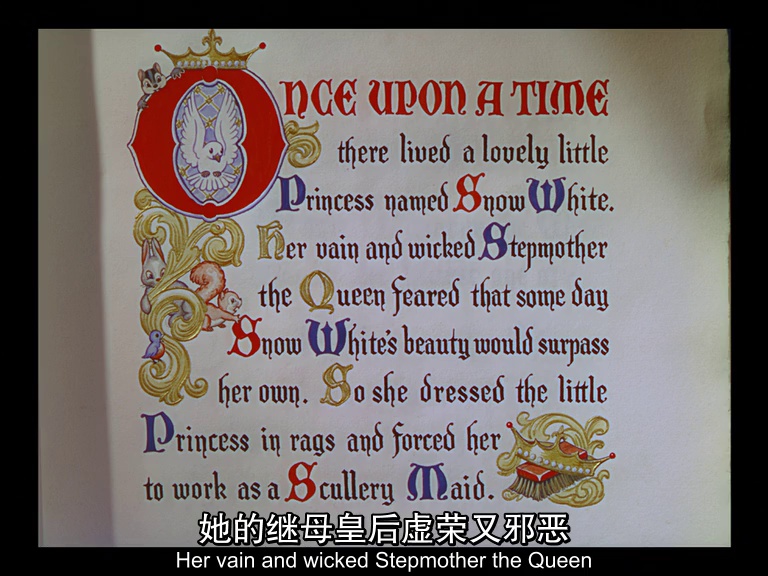 ONCE UPON A TIME
there lived a lovely little
Princess named Snow White.
Her vain and wicked Stepmother
the Queen feared that some day
Snow White's beauty would surpass
her own. So she dressed the little
Princess in rags and forced her
to work as a Scullery Maid.
她的继母皇后虚荣又邪恶
Her vain and wicked Stepmother the Queen